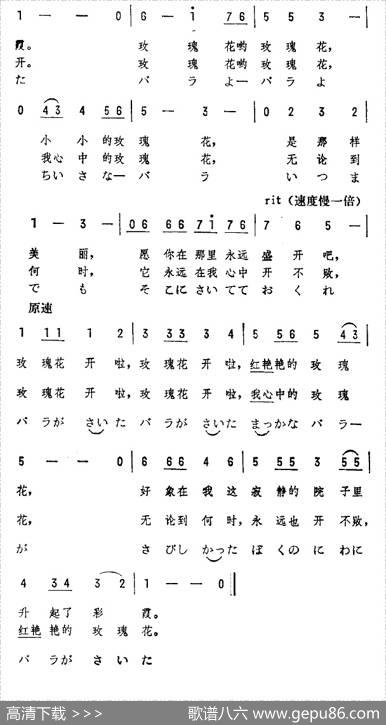 1 — — 0 | 6 — i 76 | 5 5 3 — |
霞。 玫 瑰 花哟 玫 瑰 花,
开。 玫 瑰 花哟 玫 瑰 花,
た バ ラ よ—バ ラ よ
0 43 4 56 | 5 — 3 — | 0 2 3 2 |
小 小的玫 瑰 花, 是 那 样
我心 中 的玫 瑰 花, 无 论 到
ちいさ な—バ ラ い つ ま
rit(速度慢一倍)
1 — 3 — | 06 66 7i 76 | 7 6 5 — |
美 丽, 愿 你在 那里 永远 盛 开 吧,
何 时, 它 永远 在我 心中 开 不 败,
で も そ こに さい てて お く れ
原速
1 11 1 2 | 3 33 3 4 | 5 56 5 43 |
玫 瑰花 开 啦, 玫 瑰花 开 啦, 红艳 艳的 玫 瑰
玫 瑰花 开 啦, 玫 瑰花 开 啦, 我心 中的 玫 瑰
バ ラが さいた バ ラが さいた まっかな バラー
5 — — 0 | 6 66 4 6 | 5 55 3 55 |
花, 好 象在 我 这 寂 静的 院 子里
花, 无 论到 何 时, 永 远也 开 不败,
が さ びし かった ぼ くの に わに
4 34 3 2 | 1 — — 0 ‖
升 起了 彩 霞。
红艳 艳的 玫 瑰 花。
バ ラが さ い た
高清下载 >>> 歌谱八六 www.gepu86.com